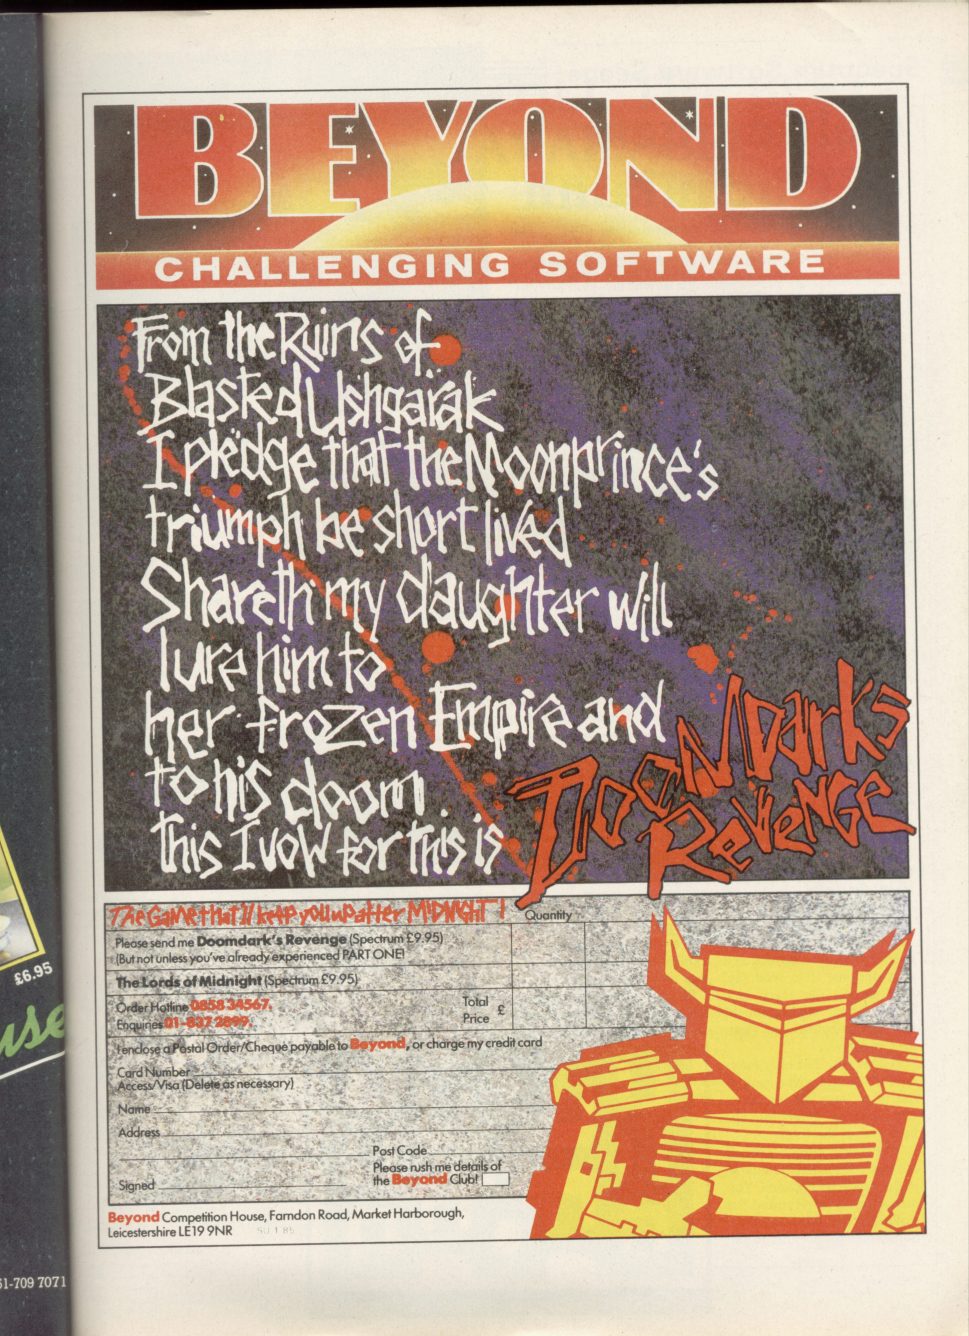 BEYOND
CHALLENGING SOFTWARE
From the Ruins of
Blasted Ushgarak
I pledge that the Moonprince's
triumph be short lived
Shareth my daughter will
lure him to
her frozen Empire and
to his doom.
this I vow for this is
DOOMDarks
REVENGE
The GaME that'll keep you up after MIDNIGHT!
Quantity
Please send me Doomdark's Revenge (Spectrum £9.95)
(But not unless you've already experienced PART ONE!)
The Lords of Midnight (Spectrum £9.95)
Order Hotline 0858 34567.
Enquiries 01-837 2899.
Total
Price £
I enclose a Postal Order/Cheque payable to Beyond, or charge my credit card
Card Number
Access/Visa (Delete as necessary)
Name
Address
Post Code
Please rush me details of
the Beyond Club!
Signed
Beyond Competition House, Farndon Road, Market Harborough,
Leicestershire LE19 9NR
£6.95
use
51-709 7071